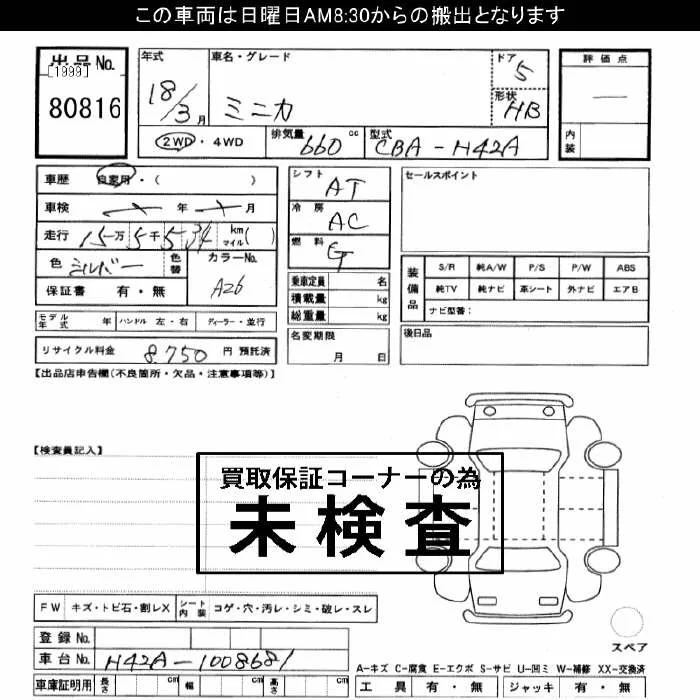 この車両は日曜日AM8:30からの搬出となります
出品No.
[1999]
80816
年式
18/3月
車名・グレード
ミニカ
ドア
5
形状
HB
評価点
—
内装
2WD・4WD
排気量
660 cc
型式
CBA-H42A
車歴 自家用・( )
車検 年 月
走行 15万5千534 km マイル( )
色 シルバー
色替
カラーNo.
A26
保証書 有・無
シフト
AT
冷房
AC
燃料
G
乗車定員 名
積載量 kg
総重量 kg
セールスポイント
装備品
S/R 純A/W P/S P/W ABS
純TV 純ナビ 革シート 外ナビ エアB
ナビ型番:
モデル年式 年 ハンドル 左・右 ディーラー・並行
名変期限
月 日
後日品
リサイクル料金 8,750 円 預託済
【出品店申告欄(不良箇所・欠品・注意事項等)】
【検査員記入】
買取保証コーナーの為
未検査
FW キズ・トビ石・割レX シート内装 コゲ・穴・汚レ・シミ・破レ・スレ
登録No.
車台No. H42A-1008681
車庫証明用 長さ cm 幅 cm 高さ cm
スペア
A-キズ C-腐食 E-エクボ S-サビ U-凹ミ W-補修 XX-交換済
工具 有・無 ジャッキ 有・無